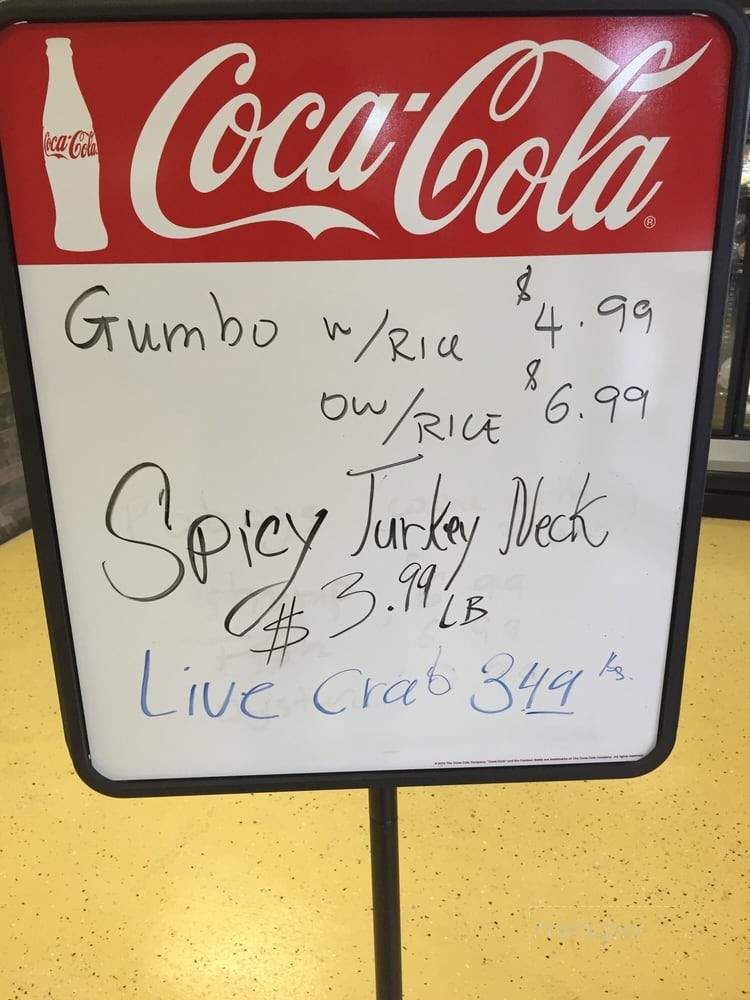 Coca-Cola
Coca-Cola ®
Gumbo w/RICE $4.99
ow/RICE $6.99
Spicy Turkey Neck
$3.99 LB
Live Crab 349